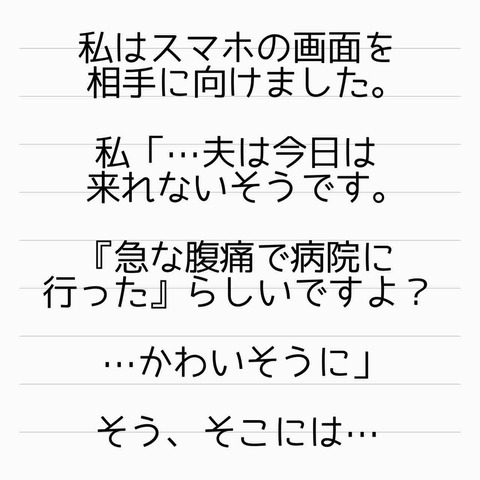 私はスマホの画面を
相手に向けました。
私「…夫は今日は
来れないそうです。
『急な腹痛で病院に
行った』らしいですよ？
…かわいそうに」
そう、そこには…